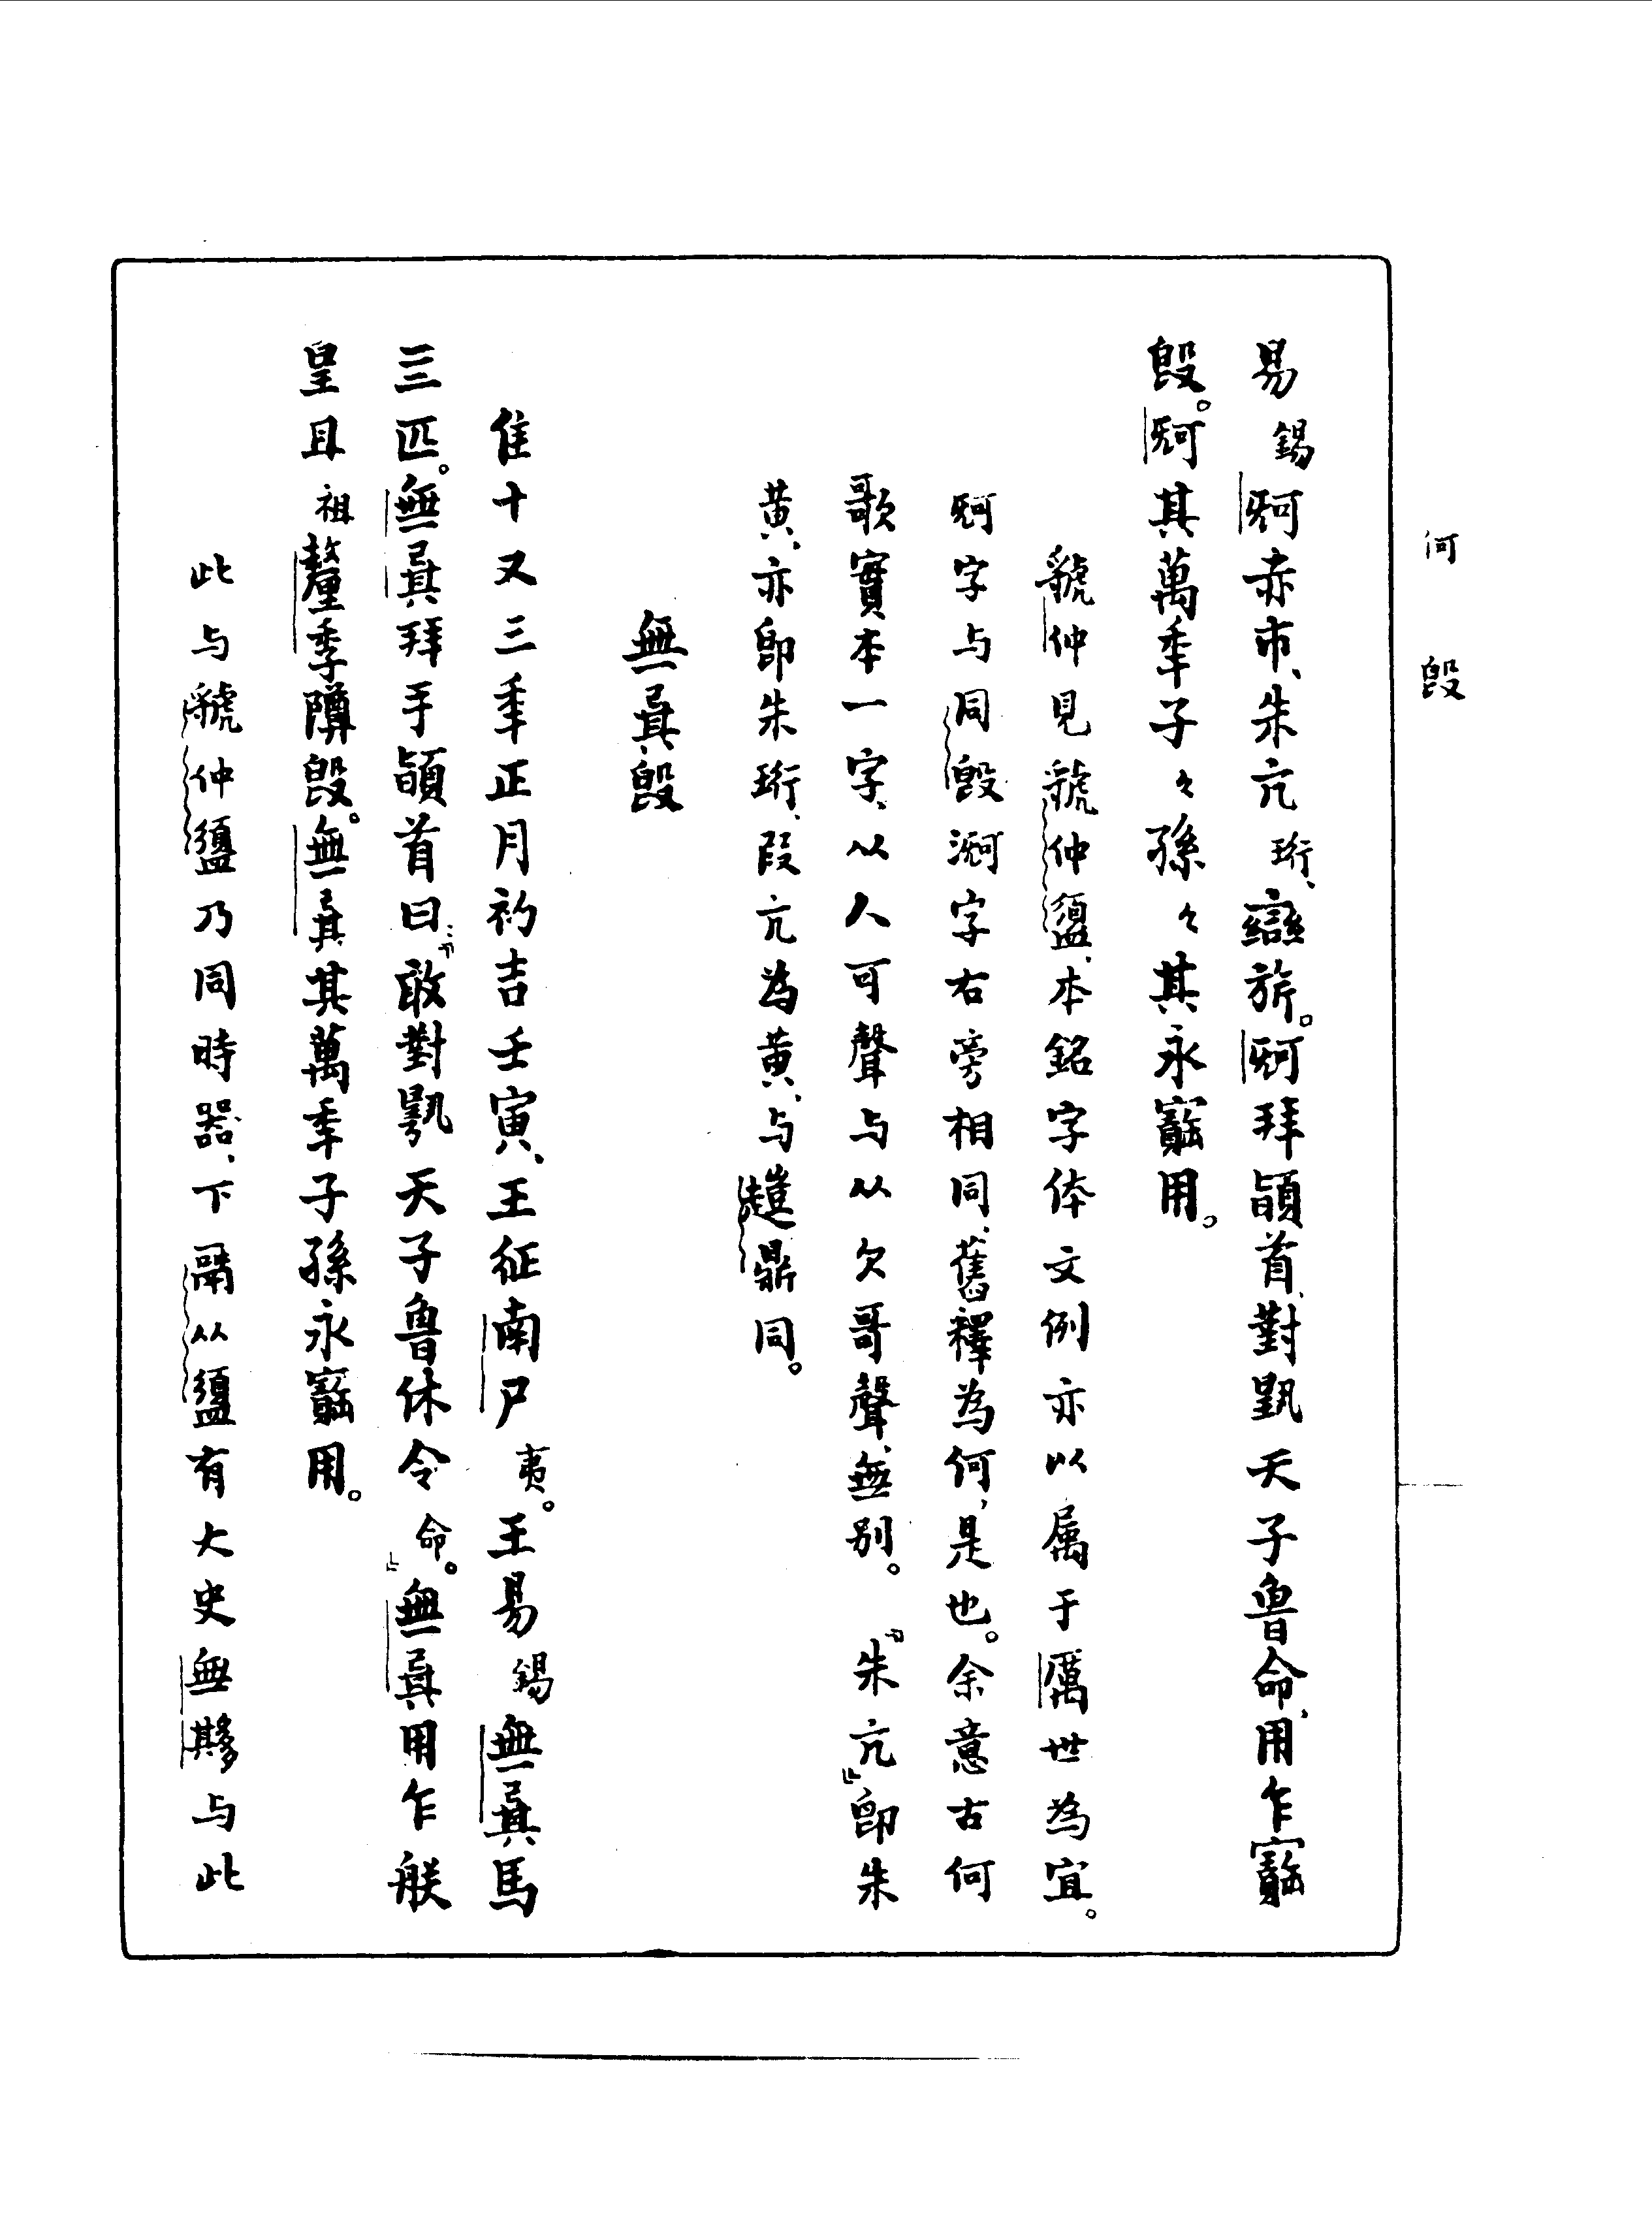 何𣪘
易錫𣄰赤巿、朱亢珩、䜌旂。𣄰拜䭫首、對𩁹天子魯命、用乍寶
𣪘。𣄰其萬年子〻孫〻其永寶用。
虢仲見虢仲盨、本銘字体文例亦以属于厲世為宜。
字与同𣪘字右旁相同、舊釋為何、是也。余意古何
歌實本一字、从人可聲与从欠哥聲、無別。『朱亢』即朱
黄、亦即朱珩、叚亢為黄、与趩鼎同。
無㠱𣪘
隹十又三年正月初吉壬寅、王征南尸夷。王易錫無㠱馬
三匹。無㠱拜手䭫首曰：『敢對天子魯休令命。』無㠱用乍朕
皇且祖釐季䵼𣪘。無㠱其萬年子孫永寶用。
此与虢仲盨乃同時器、下鬲从盨有大史無与此